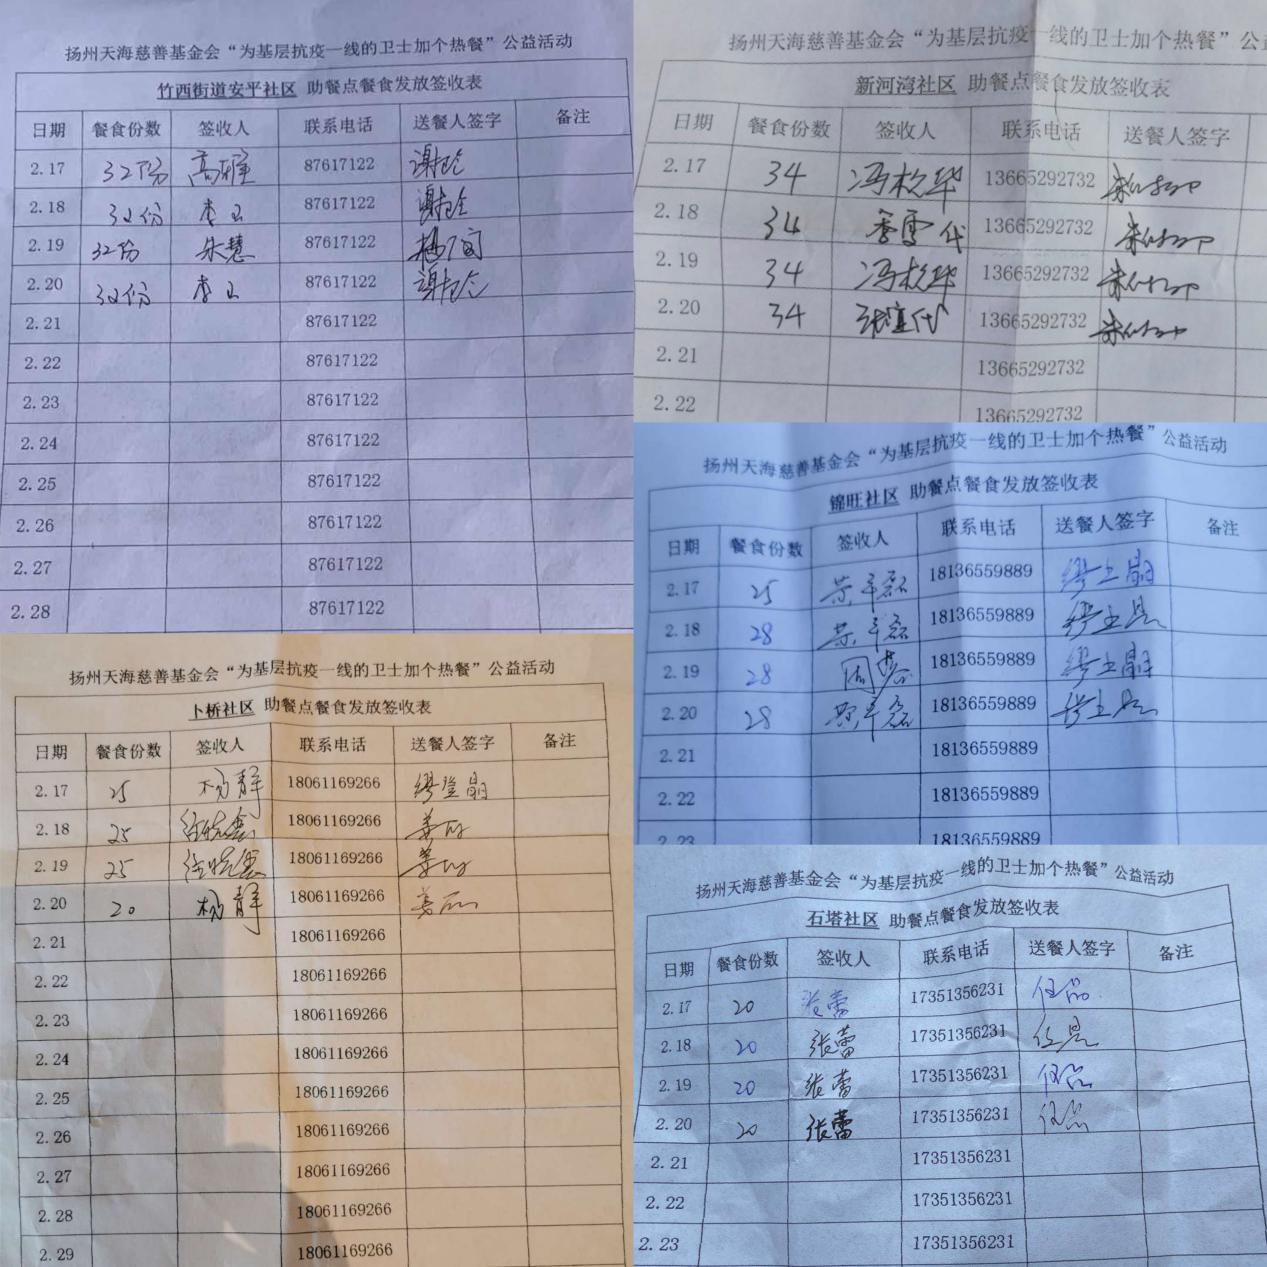 扬州天海慈善基金会“为基层抗疫一线的卫士加个热餐”公益活动
竹西街道安平社区 助餐点餐食发放签收表
日期 餐食份数 签收人 联系电话 送餐人签字 备注
2.17 32份 高雅 87617122 谢玲
2.18 32份 李玉 87617122 谢玲
2.19 32份 朱慧 87617122
2.20 32份 李玉 87617122 谢玲
2.21 87617122
2.22 87617122
2.23 87617122
2.24 87617122
2.25 87617122
2.26 87617122
2.27 87617122
2.28 87617122
扬州天海慈善基金会“为基层抗疫一线的卫士加个热餐”公
新河湾社区 助餐点餐食发放签收表
日期 餐食份数 签收人 联系电话 送餐人签字
2.17 34 冯 华 13665292732
2.18 34 代 13665292732
2.19 34 冯 华 13665292732
2.20 34 代 13665292732
2.21 13665292732
2.22 13665292732
扬州天海慈善基金会“为基层抗疫一线的卫士加个热餐”公益活动
锦旺社区 助餐点餐食发放签收表
日期 餐食份数 签收人 联系电话 送餐人签字 备注
2.17 25 18136559889 缪
2.18 28 18136559889 缪
2.19 28 18136559889 缪
2.20 28 18136559889 缪
2.21 18136559889
2.22 18136559889
2.23 18136559889
扬州天海慈善基金会“为基层抗疫一线的卫士加个热餐”公益活动
卜桥社区 助餐点餐食发放签收表
日期 餐食份数 签收人 联系电话 送餐人签字 备注
2.17 25 杨静 18061169266 缪
2.18 25 18061169266 姜
2.19 25 18061169266 姜
2.20 20 杨静 18061169266 姜
2.21 18061169266
2.22 18061169266
2.23 18061169266
2.24 18061169266
2.25 18061169266
2.26 18061169266
2.27 18061169266
2.28 18061169266
2.29 18061169266
扬州天海慈善基金会“为基层抗疫一线的卫士加个热餐”公益活动
石塔社区 助餐点餐食发放签收表
日期 餐食份数 签收人 联系电话 送餐人签字 备注
2.17 20 张蕾 17351356231
2.18 20 张蕾 17351356231
2.19 20 张蕾 17351356231
2.20 20 张蕾 17351356231
2.21 17351356231
2.22 17351356231
2.23 17351356231